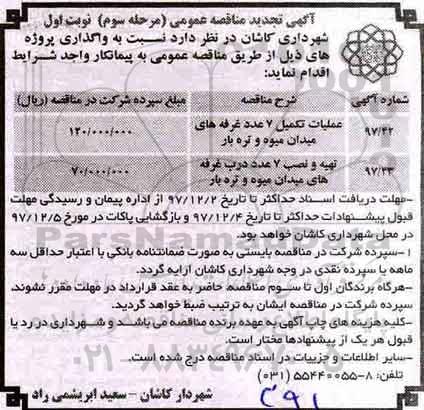 آگهی تجدید مناقصه عمومی (مرحله سوم) نوبت اول
شهرداری کاشان در نظر دارد نسبت به واگذاری پروژه
های ذیل از طریق مناقصه عمومی به پیمانکار واجد شرایط
اقدام نماید:
شماره آگهی شرح مناقصه مبلغ سپرده شرکت در مناقصه (ریال)
۹۷/۴۲ عملیات تکمیل ۷ عدد غرفه های میدان میوه و تره بار ۱۲۰/۰۰۰/۰۰۰
۹۷/۳۳ تهیه و نصب ۷ عدد درب غرفه های میدان میوه و تره بار ۷۰/۰۰۰/۰۰۰
-مهلت دریافت اسناد حداکثر تا تاریخ ۹۷/۱۲/۲ از اداره پیمان و رسیدگی مهلت
قبول پیشنهادات حداکثر تا تاریخ ۹۷/۱۲/۴ و بازگشایی پاکات در مورخ ۹۷/۱۲/۵
در محل شهرداری کاشان خواهد بود.
۱-سپرده شرکت در مناقصه بایستی به صورت ضمانتنامه بانکی با اعتبار حداقل سه
ماهه یا سپرده نقدی در وجه شهرداری کاشان ارایه گردد.
-هرگاه برندگان اول تا سوم مناقصه حاضر به عقد قرارداد در مهلت مقرر نشوند
سپرده شرکت در مناقصه ایشان به ترتیب ضبط خواهد گردید.
-کلیه هزینه های چاپ آگهی به عهده برنده مناقصه می باشد و شهرداری در رد یا
قبول هر یک از پیشنهادها مختار است.
-سایر اطلاعات و جزییات در اسناد مناقصه درج شده است.
تلفن: ۸-۵۵۴۴۰۰۵۵ (۰۳۱)
شهردار کاشان - سعید ابریشمی راد
۰۲۱-۸۸۳۴۹۶۷۰